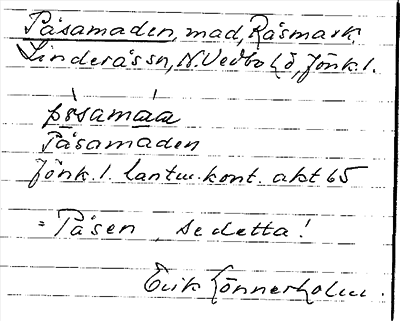 Påsamaden, mad, Råsmark
Linderås sn, N. Vedbo hd, Jönk. l.
påsamáa
Påsamaden
Jönk. l. lantm. kont. akt 65
= Påsen, se detta!
Erik Lönnerholm